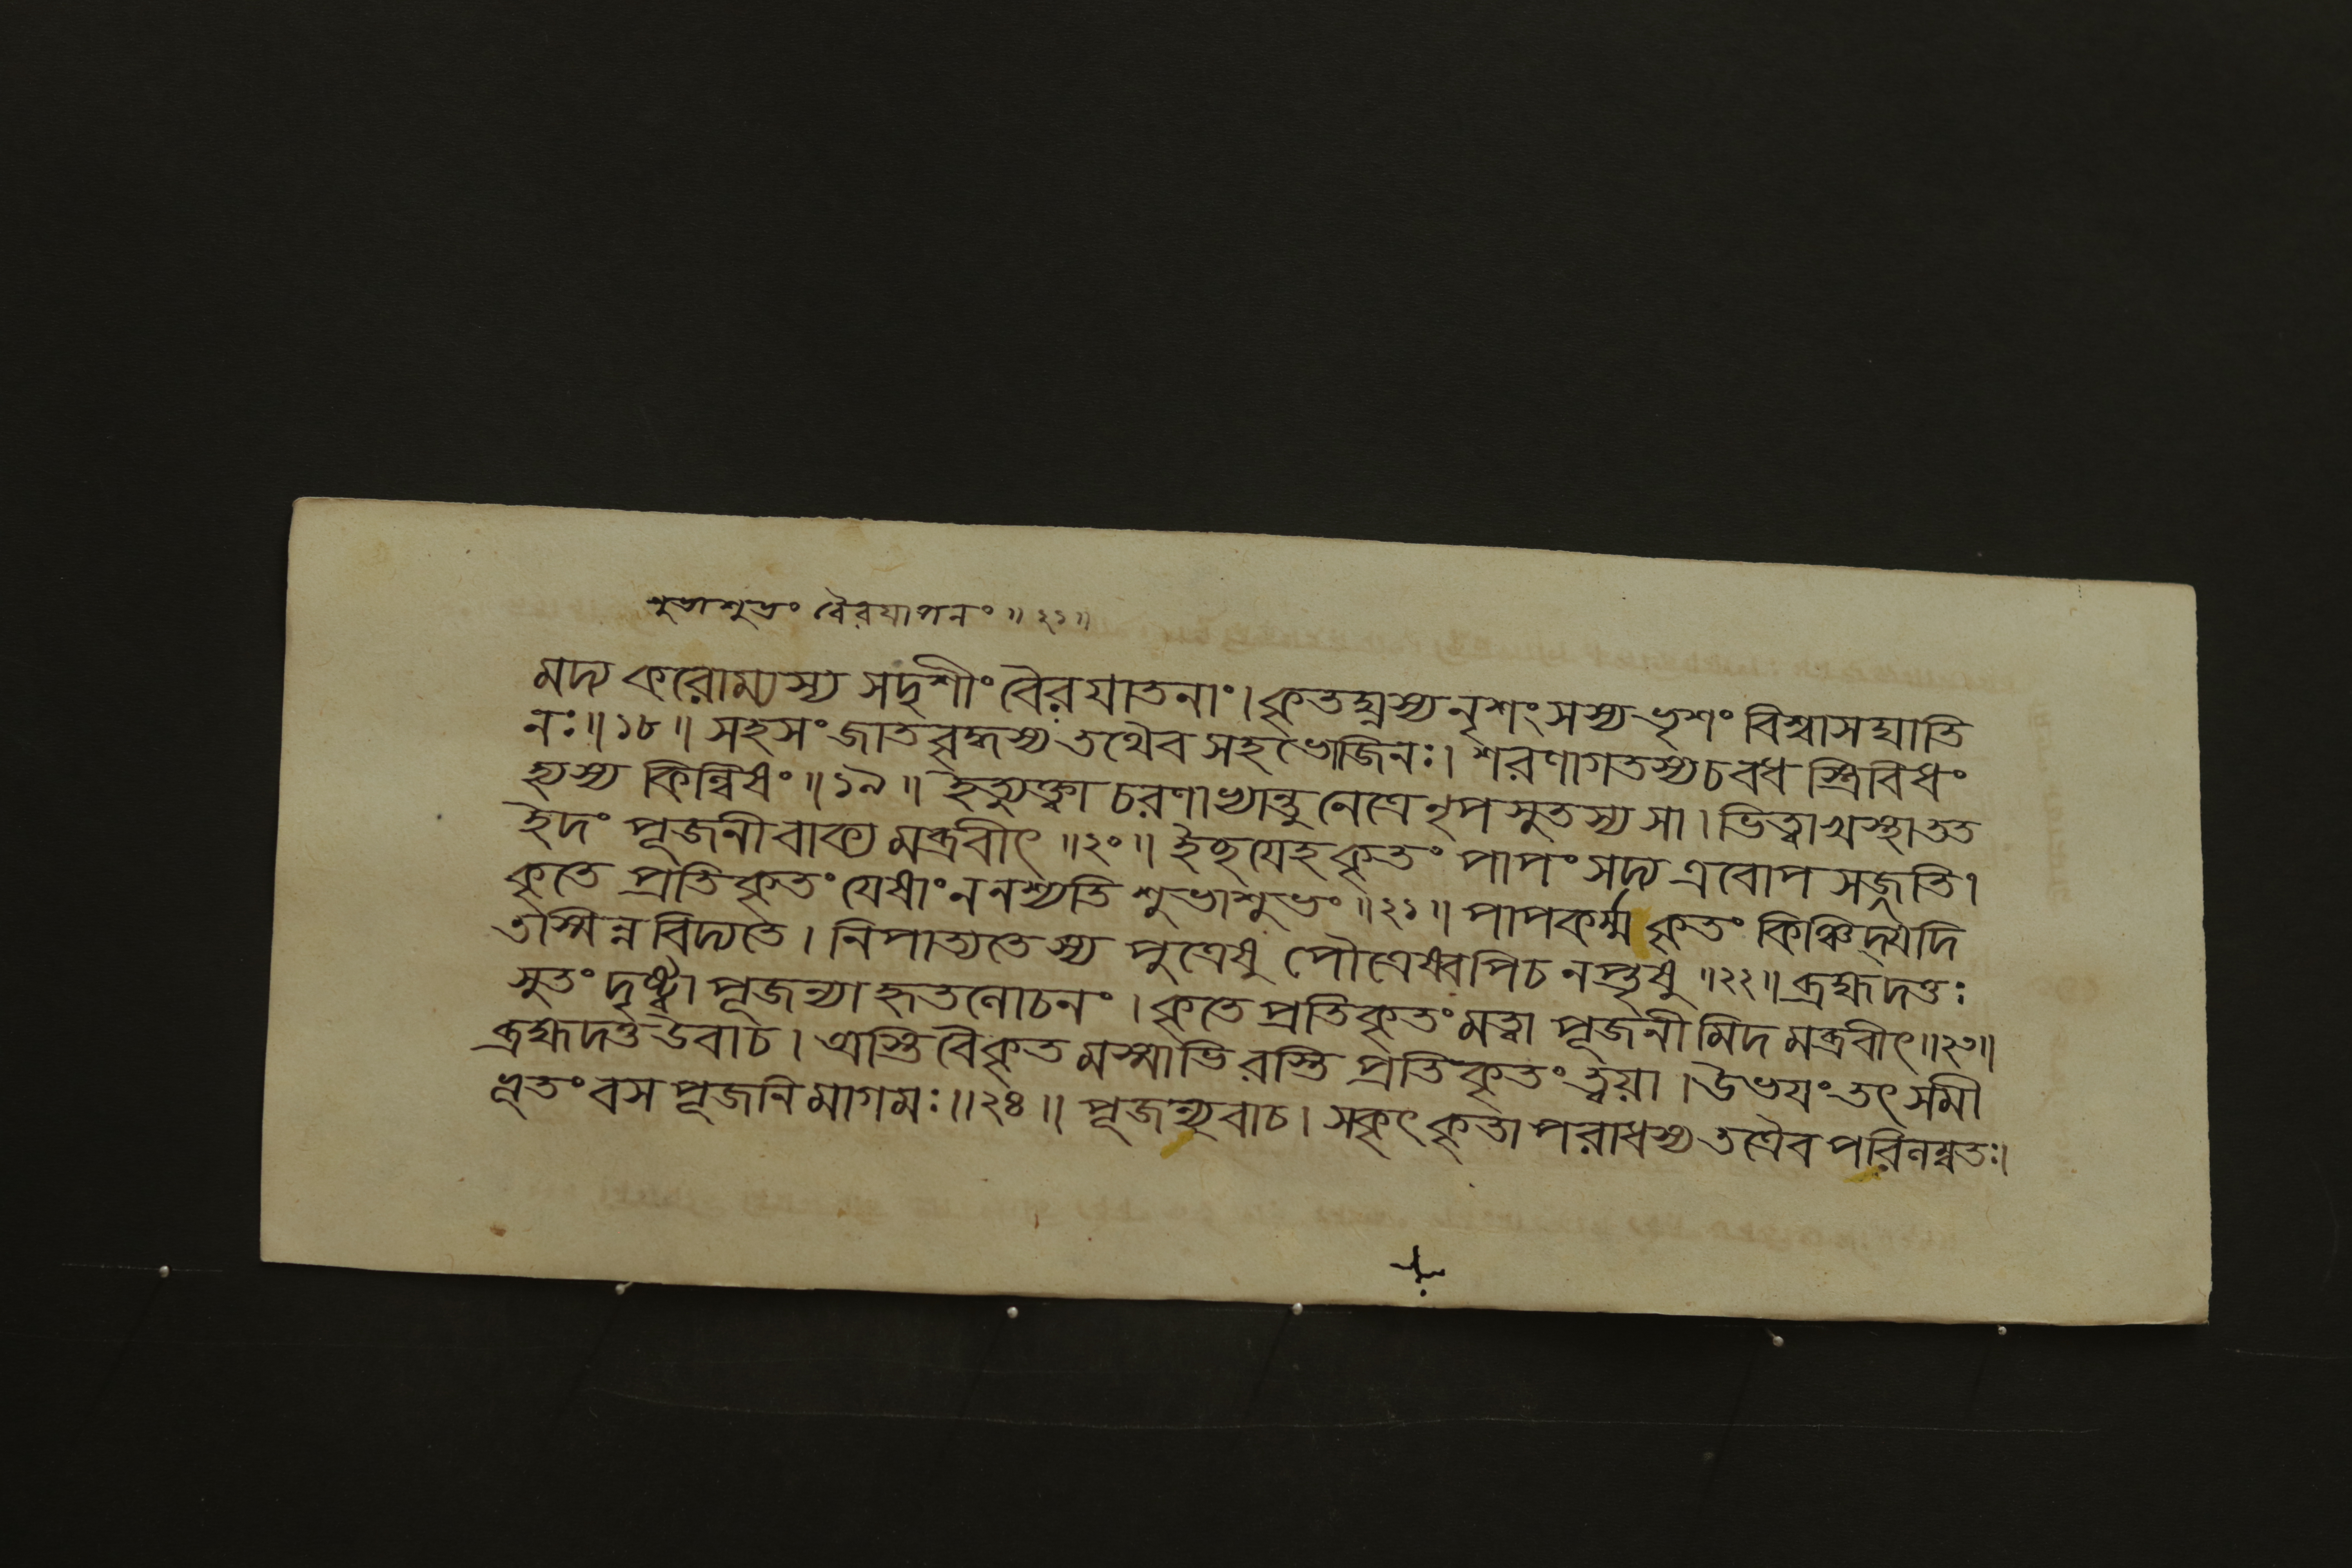 শুভাশুভং বৈরযাপনং ॥২১॥
মদ্য করোম্যস্য সদৃশীং বৈরযাতনাং। কৃতঘ্নস্য নৃশংসস্য ভৃশং বিশ্বাসঘাতি
নঃ॥১৮॥ সহসংজাতবৃদ্ধস্য তথৈব সহভোজিনঃ। শরণাগতস্য চ বধ স্ত্রিবিধং
হ্যস্য কিল্বিষং॥১৯॥ ইত্যুক্ত্বা চরণাভ্যান্তু নেত্রে নৃপসুতস্য সা। ভিত্বা খস্থা তত
ইদং পূজনী বাক্য মব্রবীৎ॥২০॥ ইহ যেহ কৃতং পাপং সদ্য এবোপসর্জতি।
কৃতে প্রতিকৃতং যেষাং ন নশ্যতি শুভাশুভং॥২১॥ পাপকর্ম্ম কৃতং কিঞ্চিদ্যদি
তস্মিন্ন বিদ্যতে। নিপাত্যতেস্য পুত্রেষু পৌত্রেষ্বপি চ নপ্তৃষু॥২২॥ ব্রহ্মদত্তঃ
সুতং দৃষ্ট্বা পূজন্যা হৃতলোচনং। কৃতে প্রতিকৃতং মত্বা পূজনীমিদ মব্রবীৎ॥২৩॥
ব্রহ্মদত্ত উবাচ। অস্তি বৈ কৃত মস্মাভি রস্তি প্রতিকৃতং ত্বয়া। উভয়ং তৎ সমী
ভূতং বস পূজনি মাগমঃ॥২৪॥ পূজন্যুবাচ। সকৃৎ কৃতাপরাধস্য তত্রৈব পরিলম্বতঃ।